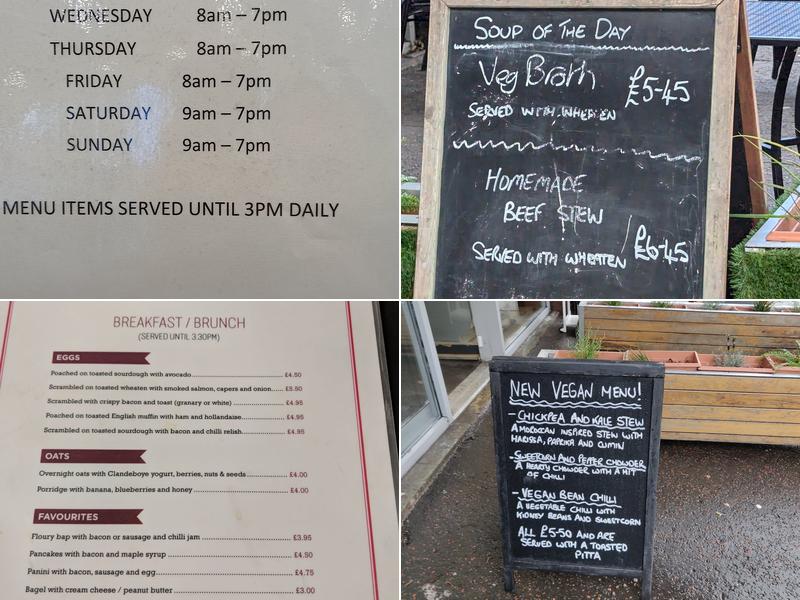 WEDNESDAY 8am – 7pm
THURSDAY 8am – 7pm
FRIDAY 8am – 7pm
SATURDAY 9am – 7pm
SUNDAY 9am – 7pm
MENU ITEMS SERVED UNTIL 3PM DAILY
SOUP OF THE DAY
Veg Broth £5-45
SERVED WITH WHEATEN
HOMEMADE
BEEF STEW
£6-45
SERVED WITH WHEATEN
BREAKFAST / BRUNCH
(SERVED UNTIL 3.30PM)
EGGS
Poached on toasted sourdough with avocado £4.50
Scrambled on toasted wheaten with smoked salmon, capers and onion £5.50
Scrambled with crispy bacon and toast (granary or white) £4.95
Poached on toasted English muffin with ham and hollandaise £4.95
Scrambled on toasted sourdough with bacon and chilli relish £4.95
OATS
Overnight oats with Clandeboye yogurt, berries, nuts & seeds £4.00
Porridge with banana, blueberries and honey £4.00
FAVOURITES
Floury bap with bacon or sausage and chilli jam £3.95
Pancakes with bacon and maple syrup £4.50
Panini with bacon, sausage and egg £4.75
Bagel with cream cheese / peanut butter £3.00
NEW VEGAN MENU!
- CHICKPEA AND KALE STEW
A MOROCCAN INSPIRED STEW WITH
HARISSA, PAPRIKA AND CUMIN
- SWEETCORN AND PEPPER CHOWDER
A HEARTY CHOWDER WITH A HIT
OF CHILLI
- VEGAN BEAN CHILLI
A VEGETABLE CHILLI WITH
KIDNEY BEANS AND SWEETCORN
ALL £5-50 AND ARE
SERVED WITH A TOASTED
PITTA